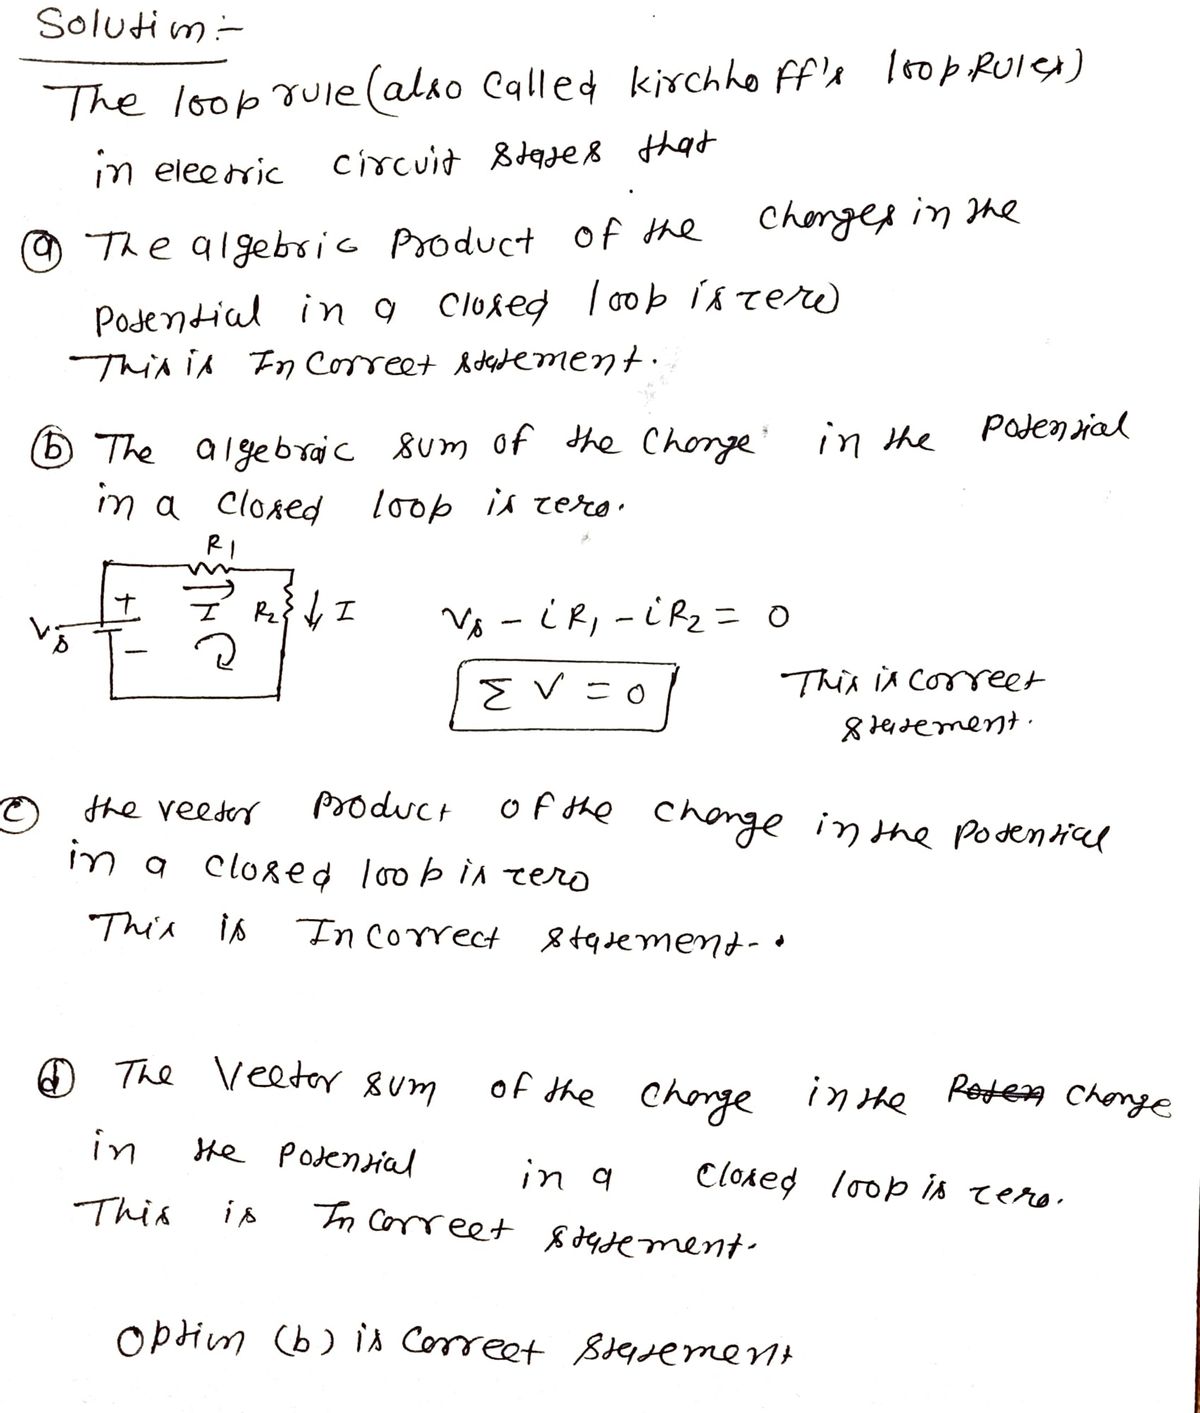 Solution :-
The loop rule (also called kirchhoff's loop Rules)
in electric circuit states that
(a) The algebric Product of the changes in the
Potential in a closed loop is zero
This is InCorrect statement.
(b) The algebraic sum of the change in the Potential
in a closed loop is zero.
R1
+
I R2 ↓ I
Vs
-
Vs - iR1 - iR2 = 0
Σ V = 0
This is correct
statement.
(c) the vector Product of the change in the Potential
in a closed loop is zero
This is InCorrect statement-.
(d) The Vector sum of the change in the Poten change
in the Potential in a closed loop is zero.
This is InCorrect statement.
Option (b) is Correct Statement